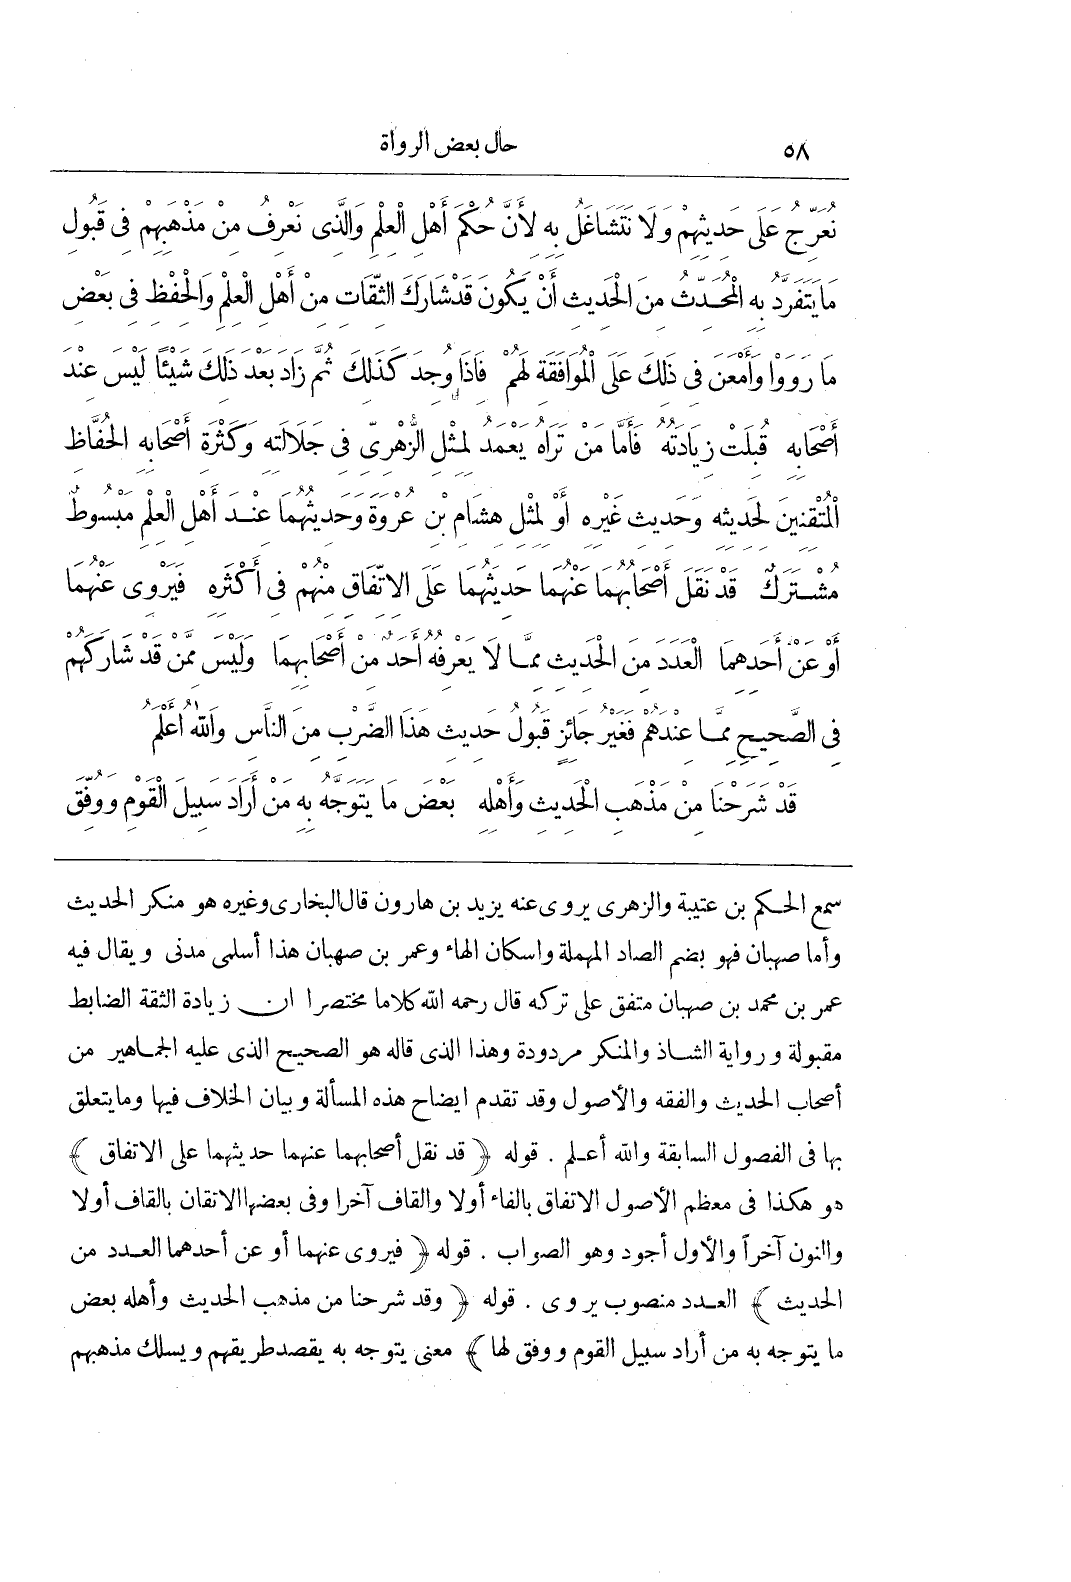 ٥٨ حال بعض الرواة
نُعَرِّجُ عَلَى حَدِيثِهِمْ وَلَا نَتَشَاغَلُ بِهِ لِأَنَّ حُكْمَ أَهْلِ الْعِلْمِ وَالَّذِى نَعْرِفُ مِنْ مَذْهَبِهِمْ فِى قَبُولِ
مَا يَتَفَرَّدُ بِهِ الْمُحَدِّثُ مِنَ الْحَدِيثِ أَنْ يَكُونَ قَدْ شَارَكَ الثِّقَاتِ مِنْ أَهْلِ الْعِلْمِ وَالْحِفْظِ فِى بَعْضِ
مَا رَوَوْا وَأَمْعَنَ فِى ذَلِكَ عَلَى الْمُوَافَقَةِ لَهُمْ فَاذَا وُجِدَ كَذَلِكَ ثُمَّ زَادَ بَعْدَ ذَلِكَ شَيْئًا لَيْسَ عِنْدَ
أَصْحَابِهِ قُبِلَتْ زِيَادَتُهُ فَأَمَّا مَنْ تَرَاهُ يَعْمِدُ لِمِثْلِ الزُّهْرِىِّ فِى جَلَالَتِهِ وَكَثْرَةِ أَصْحَابِهِ الْحُفَّاظِ
الْمُتْقِنِينَ لِحَدِيثِهِ وَحَدِيثِ غَيْرِهِ أَوْ لِمِثْلِ هِشَامِ بْنِ عُرْوَةَ وَحَدِيثُهُمَا عِنْدَ أَهْلِ الْعِلْمِ مَبْسُوطٌ
مُشْتَرَكٌ قَدْ نَقَلَ أَصْحَابُهُمَا عَنْهُمَا حَدِيثَهُمَا عَلَى الِاتِّفَاقِ مِنْهُمْ فِى أَكْثَرِهِ فَيَرْوِى عَنْهُمَا
أَوْ عَنْ أَحَدِهِمَا الْعَدَدَ مِنَ الْحَدِيثِ مِمَّا لَا يَعْرِفُهُ أَحَدٌ مِنْ أَصْحَابِهِمَا وَلَيْسَ مِمَّنْ قَدْ شَارَكَهُمْ
فِى الصَّحِيحِ مِمَّا عِنْدَهُمْ فَغَيْرُ جَائِزٍ قَبُولُ حَدِيثِ هَذَا الضَّرْبِ مِنَ النَّاسِ وَاللهُ أَعْلَمُ
قَدْ شَرَحْنَا مِنْ مَذْهَبِ الْحَدِيثِ وَأَهْلِهِ بَعْضَ مَا يَتَوَجَّهُ بِهِ مَنْ أَرَادَ سَبِيلَ الْقَوْمِ وَوُفِّقَ
سمع الحكم بن عتيبة والزهرى يروى عنه يزيد بن هارون قال البخارى وغيره هو منكر الحديث
وأما صهبان فهو بضم الصاد المهملة واسكان الهاء وعمر بن صهبان هذا أسلمى مدنى ويقال فيه
عمر بن محمد بن صهبان متفق على تركه قال رحمه الله كلاما مختصرا ان زيادة الثقة الضابط
مقبولة ورواية الشاذ والمنكر مردودة وهذا الذى قاله هو الصحيح الذى عليه الجماهير من
أصحاب الحديث والفقه والأصول وقد تقدم ايضاح هذه المسألة وبيان الخلاف فيها وما يتعلق
بها فى الفصول السابقة والله أعلم . قوله ﴿قد نقل أصحابهما عنهما حديثهما على الاتفاق﴾
هو هكذا فى معظم الأصول الاتفاق بالفاء أولا والقاف آخرا وفى بعضها الاتقان بالقاف أولا
والنون آخراً والأول أجود وهو الصواب . قوله ﴿فيروى عنهما أو عن أحدهما العدد من
الحديث﴾ العدد منصوب يروى . قوله ﴿وقد شرحنا من مذهب الحديث وأهله بعض
ما يتوجه به من أراد سبيل القوم ووفق لها﴾ معنى يتوجه به يقصد طريقهم ويسلك مذهبهم